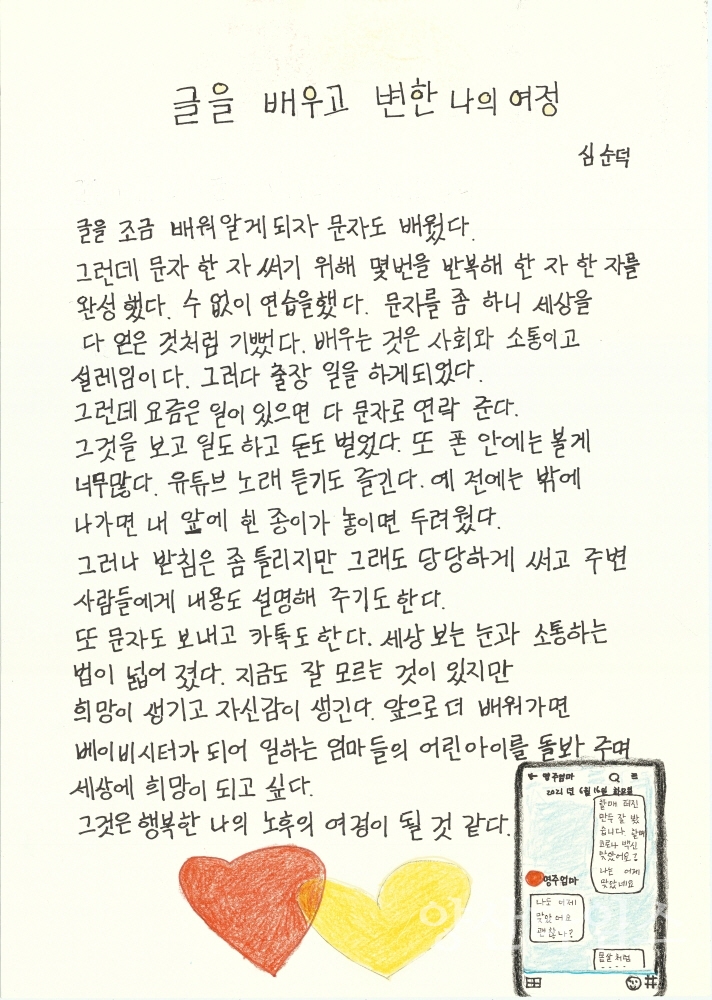 글을 배우고 변한 나의 여정
심순덕
글을 조금 배워알게되자 문자도 배웠다.
그런데 문자 한 자 써기 위해 몇번을 반복해 한 자 한 자를
완성 했다. 수 없이 연습을했다. 문자를 좀 하니 세상을
다 얻은 것처럼 기뻤다. 배우는 것은 사회와 소통이고
설레임이다. 그러다 출장 일을 하게되었다.
그런데 요즘은 일이 있으면 다 문자로 연락 준다.
그것을 보고 일도 하고 돈도 벌었다. 또 폰 안에는 볼게
너무많다. 유튜브 노래 듣기도 즐긴다. 예 전에는 밖에
나가면 내 앞에 흰 종이가 놓이면 두려웠다.
그러나 받침은 좀 틀리지만 그래도 당당하게 써고 주변
사람들에게 내용도 설명해 주기도한다.
또 문자도 보내고 카톡도한다. 세상 보는 눈과 소통하는
법이 넓어 졌다. 지금도 잘 모르는 것이 있지만
희망이 생기고 자신감이 생긴다. 앞으로 더 배워가면
베이비시터가 되어 일하는 엄마들의 어린아이를 돌봐 주며
세상에 희망이 되고 싶다.
그것은 행복한 나의 노후의 여정이 될 것 같다.
← 영주엄마
2021년 6월 16일 화요일
할매 터진
만두 잘 봤
습니다 할매
코로나 백신
맞았어요?
나는 어제
맞았네요
영주엄마
나도 어제
맞았어요
괜찮나?
몸살처럼